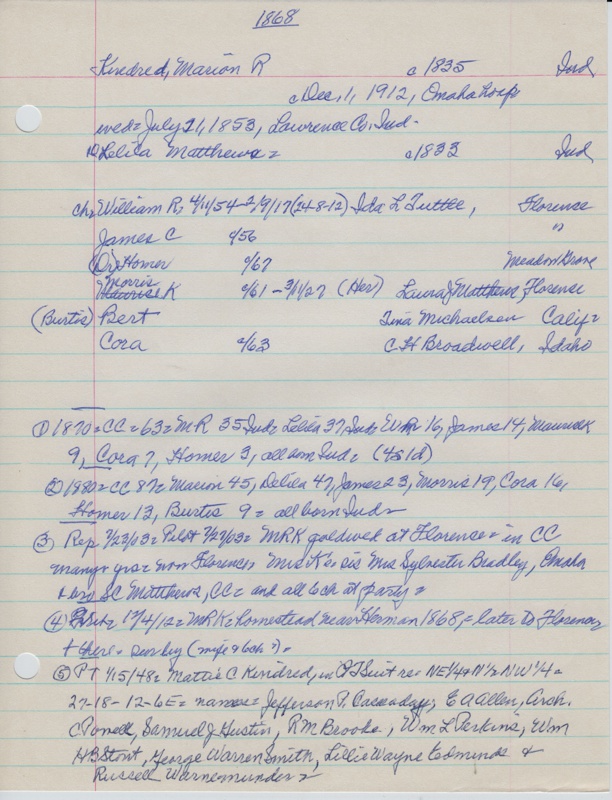 1868
Kindred, Marion R c 1835 Ind
c Dec, 1, 1912, Omaha Hosp
wed= July 21, 1853, Lawrence Co, Ind-
Lelila Matthews= c 1833 Ind
ch= William R, 4/11/54-2/9/17 (24-8-12)- Ida L Tuttle, Florence
James C c/56 "
(Dr) Homer c/67 Meadow Grove
Morris K c/61-3/11/27 (Her) Laura J Matthews Florence
(Burtis) Bert Tina Michaelsen Calif=
Cora c/63 C H Broadwell, Idaho
① 1870=CC=63=MR 35 Ind= Lelila 37 Ind= Wm R 16, James 14, Maurice K
9, Cora 7, Homer 3, all born Ind= (4s 1d)
② 1880=CC 87= Marion 45, Delila 47, James 23, Morris 19, Cora 16,
Homer 13, Burtis 9= all born Ind=
③ Rep 7/23/03= Pilot 7/27/03= MRK goldwed at Florence= in CC
many yrs= now Florence, Mrs K's sis Mrs Sylvester Bradley, Omaha
+ bro SC Matthews, CC= and all 6 ch at party=
④ 12/4/12= MRK= homestead near Herman 1868,= later to Florence,
+ there= surv by (wife & 6 ch)=
⑤ PT 1/15/48= Mattie C Kindred, in QT Suit re= NE1/4+N1/2 NW1/4=
27-18-12-6E= names= Jefferson P. Cassaday, E A Allen, Arch.
C Powell, Samuel J Hustin, R M Brooks, Wm L Perkins, Wm
H B Stout, George Warren Smith, Lillie Wayne Edminds &
Russell Warnemunder=